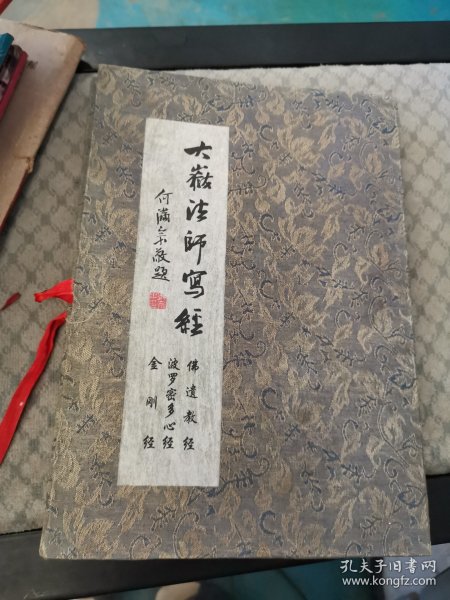 大嶽法師寫經
何滿宗敬題
佛遺教經
波罗密多心经
金刚经
孔夫子旧书网
www.kongfz.com